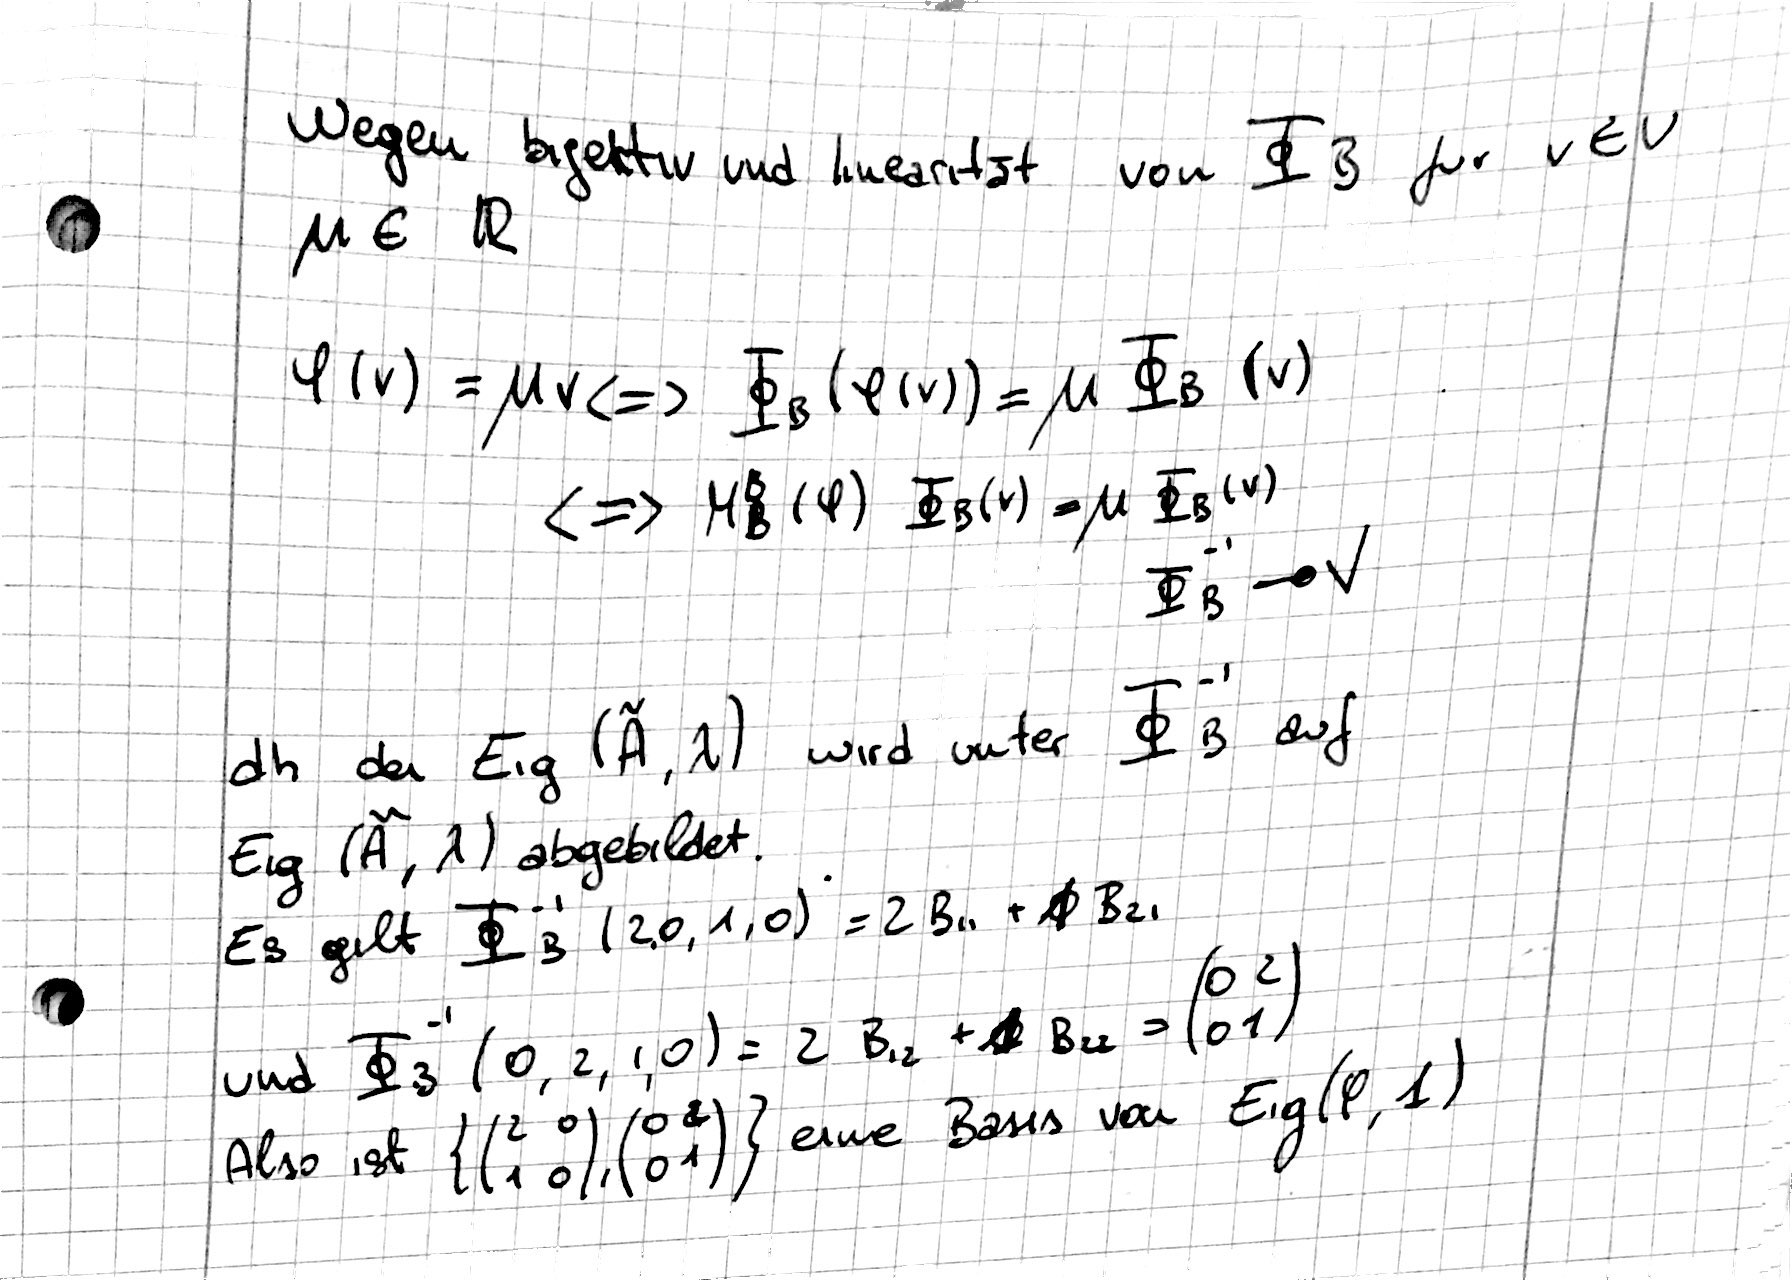 Wegen bijektiv und linearität von Φ_B für v ∈ V
μ ∈ ℝ
φ(v) = μv <=> Φ_B(φ(v)) = μ Φ_B (v)
<=> M^B_B (φ) Φ_B(v) = μ Φ_B(v)
Φ_B^-1 → V
dh der Eig (Ã, λ) wird unter Φ_B^-1 auf
Eig (Ã, λ) abgebildet.
Es gilt Φ_B^-1 (2,0,1,0) = 2 B₁₁ + 1 B₂₁
und Φ_B^-1 (0, 2, 1, 0) = 2 B₁₂ + 1 B₂₂ = (0 2 / 0 1)
Also ist {(2 0 / 1 0), (0 2 / 0 1)} eine Basis von Eig(φ, 1)